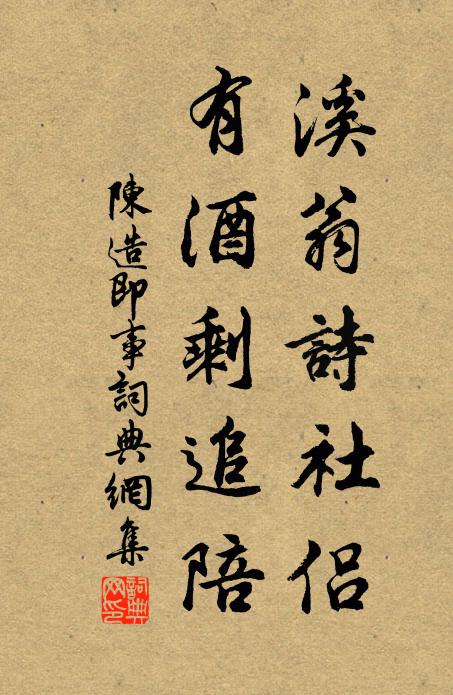 溪翁詩社侶
有酒剩追陪
陳造即事詞典網集
詞典網印